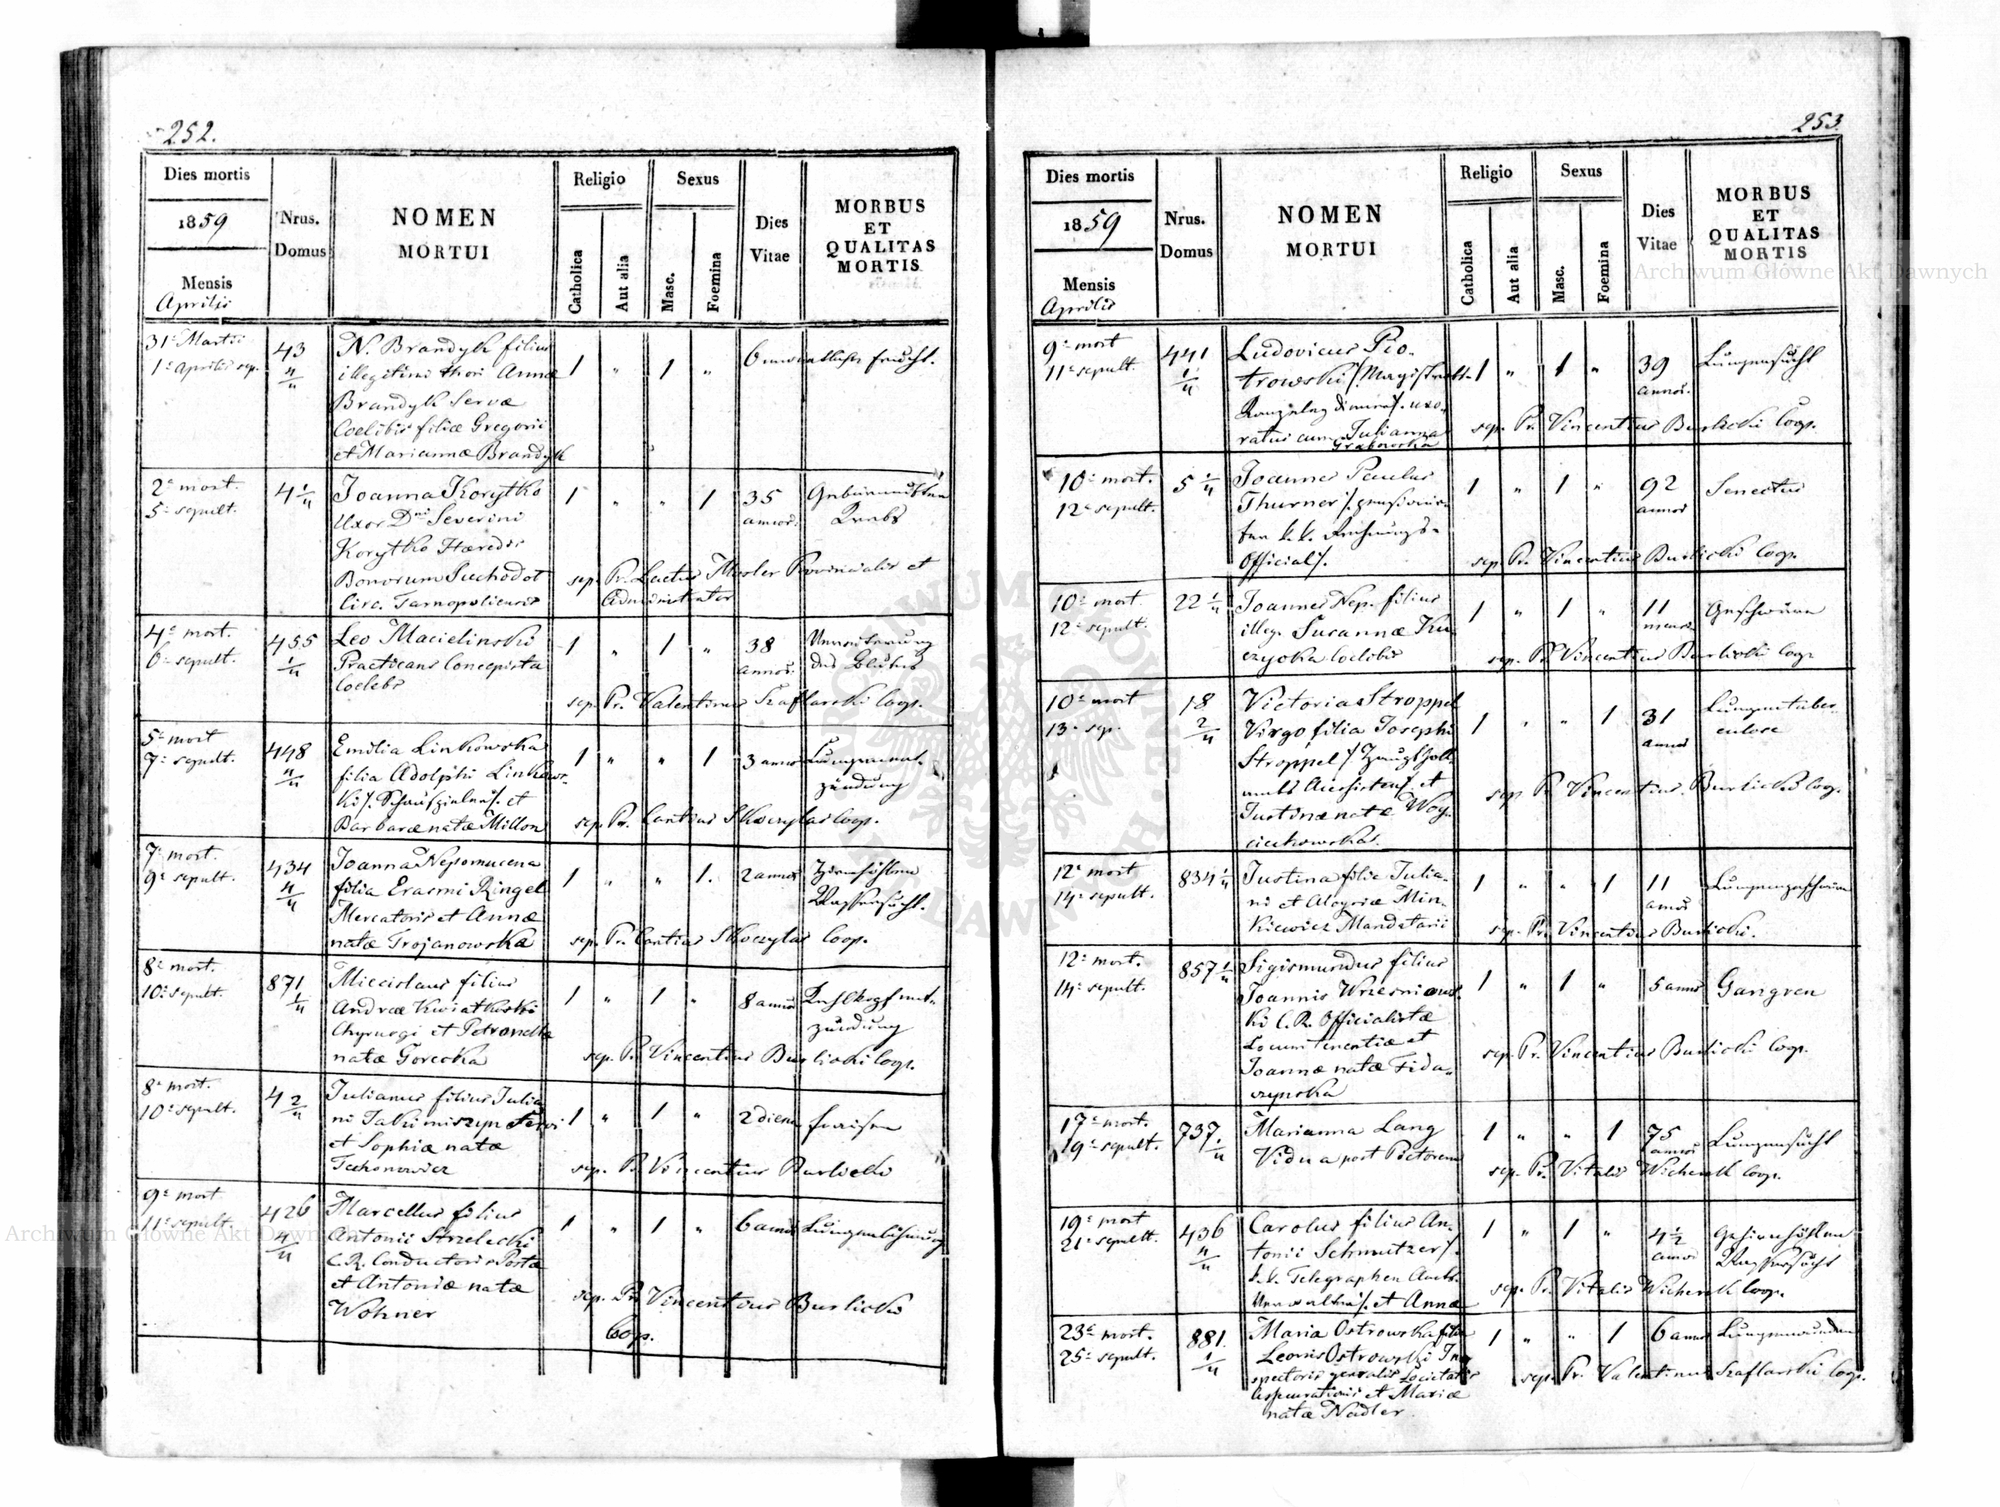 252.
Dies mortis
1859
Mensis
Aprilis
Nrus.
Domus
NOMEN
MORTUI
Religio
Catholica
Aut alia
Sexus
Masc.
Foemina
Dies
Vitae
MORBUS
ET
QUALITAS
MORTIS
31a Martii
1a Aprilis sep.
43
4/4
N. Brandyk filius
illegitimi thori Annæ
Brandyk Servæ
Coelibis filiæ Gregorii
et Mariannæ Brandyk
1 " 1 "
6 monatliche Frucht.
2a mort.
5a sepult.
4 1/4
Joanna Korytko
Uxor Dni Severini
Korytko Hæredis
Bonorum Suchodot
Circ. Tarnopoliensis
1 " " 1
35
annor.
Krebs
sep. Pr. Lactus Provincialis et
Administrator
4a mort.
6a sepult.
455
1/4
Leo Macielinski
Practicans Concepista
Coelebs
1 " 1 "
38
annor.
des
sep. Pr. Valentinus Szaflarski Coop.
5a mort
7a sepult.
448
4/4
Emilia Linkowska
filia Adolphi Linkows-
ki /. Schauspielers /. et
Barbaræ natæ Millon
1 " " 1
3 annor
Lungenent-
zündung
sep. Pr. Cantius Skoczylas Coop.
7a mort.
9a sepult.
434
4/4
Joanna Nepomucena
filia Erasmi Ringel
Mercatoris et Annæ
natæ Trojanowska
1 " " 1.
2 annor
Wassersucht.
sep. Pr. Cantius Skoczylas Coop.
8a mort.
10a sepult.
871
1/4
Miecislaus filius
Andreæ Kwiatkoski
Chyrurgi et Petronellæ
natæ Gorecka
1 " 1 "
8 annor
Kehlkopfent-
zündung
sep. Pr. Vincentius Burlicki Coop.
8a mort.
10a sepult.
4 2/4
Julianus filius Julia
ni Jakimiszyn Servi
et Sophiæ natæ
1 " 1 "
2 dierum
Fraisen
sep. P. Vincentius Burlicki
9a mort
11a sepult.
426
4/4
Marcellus filius
Antonii Strzelecki
C.R. Conductoris Postæ
et Antoniæ natæ
Wohner
1 " 1 "
6 annor
Lungenlähmung
sep. Pr. Vincentius Burlicki
Coop.
253.
Dies mortis
1859
Mensis
Aprilis
Nrus.
Domus
NOMEN
MORTUI
Religio
Catholica
Aut alia
Sexus
Masc.
Foemina
Dies
Vitae
MORBUS
ET
QUALITAS
MORTIS
9a mort
11a sepult.
441
1/4
Ludovicus Pio-
trowski /. Magistrats-
Kanzeley Diurnist /. uxo-
ratus cum Julianna
Grabowska
1 " 1 "
39
annor.
Lungensucht
sep. Pr. Vincentius Burlicki Coop.
10a mort.
12a sepult.
5 1/4
Joannes Paulus
Thurner /. pensionir-
ter k.k. Rechnungs-
Official /.
1 " 1 "
92
annor
Senectus
sep. Pr. Vincentius Burlicki Coop.
10a mort.
12a sepult.
22 1/4
Joannes Nep. filius
illeg. Susannæ Ku-
czyoka Coelibis
1 " 1 "
11
mens.
Geschwüre
sep. Pr. Vincentius Burlicki Coop
10a mort
13a sep.
18
2/4
Victoria Stroppel
Virgo filia Josephi
Stroppel /.
amts Assistent /. et
Justinæ natæ Woy-
ciechowska.
1 " " 1
31
annor
Lungentuber-
culose
sep. Pr. Vincentius Burlicki Coop.
12a mort
14a sepult.
834 1/4
Justina filia Julia-
ni et Aloysiæ Min-
kiewicz Mandatarii
1 " " 1
11
annor
Lungengeschwür
sep. Pr. Vincentius Burlicki.
12a mort.
14a sepult.
857 1/4
Sigismundus filius
Joannis Wrzesniows-
ki C.R. Officialistæ
Locumtenentiæ et
Joannæ natæ Fida-
szynska
1 " 1 "
5 annor
Gangren
sep. Pr. Vincentius Burlicki Coop.
17a mort.
19a sepult.
737
1/4
Marianna Lang
Vidua post Pictorem
1 " " 1
75
annor
Lungensucht
sep. Pr. Vitalis Wicherek Coop.
19a mort
21a sepult.
436
4/4
Carolus filius An-
tonii Schmutzer /.
k.k. Telegraphen Amts-
Verwalters /. et Annæ
1 " 1 "
4 1/2
annor
Gehirnhöhlen
Wassersucht
sep. Pr. Vitalis Wicherek Coop.
23a mort.
25a sepult.
881.
1/4
Maria Ostrowska filia
Leonis Ostrowski Ins-
pectoris generalis Societatis
Assecurationis et Mariæ
natæ Nadler.
1 " " 1
6 annor
sep. Pr. Valentinus Szaflarski Coop.
Archiwum Główne Akt Dawnych
Archiwum Główne Akt Dawnych
ARCHIWUM GŁÓWNE AKT DAWNYCH